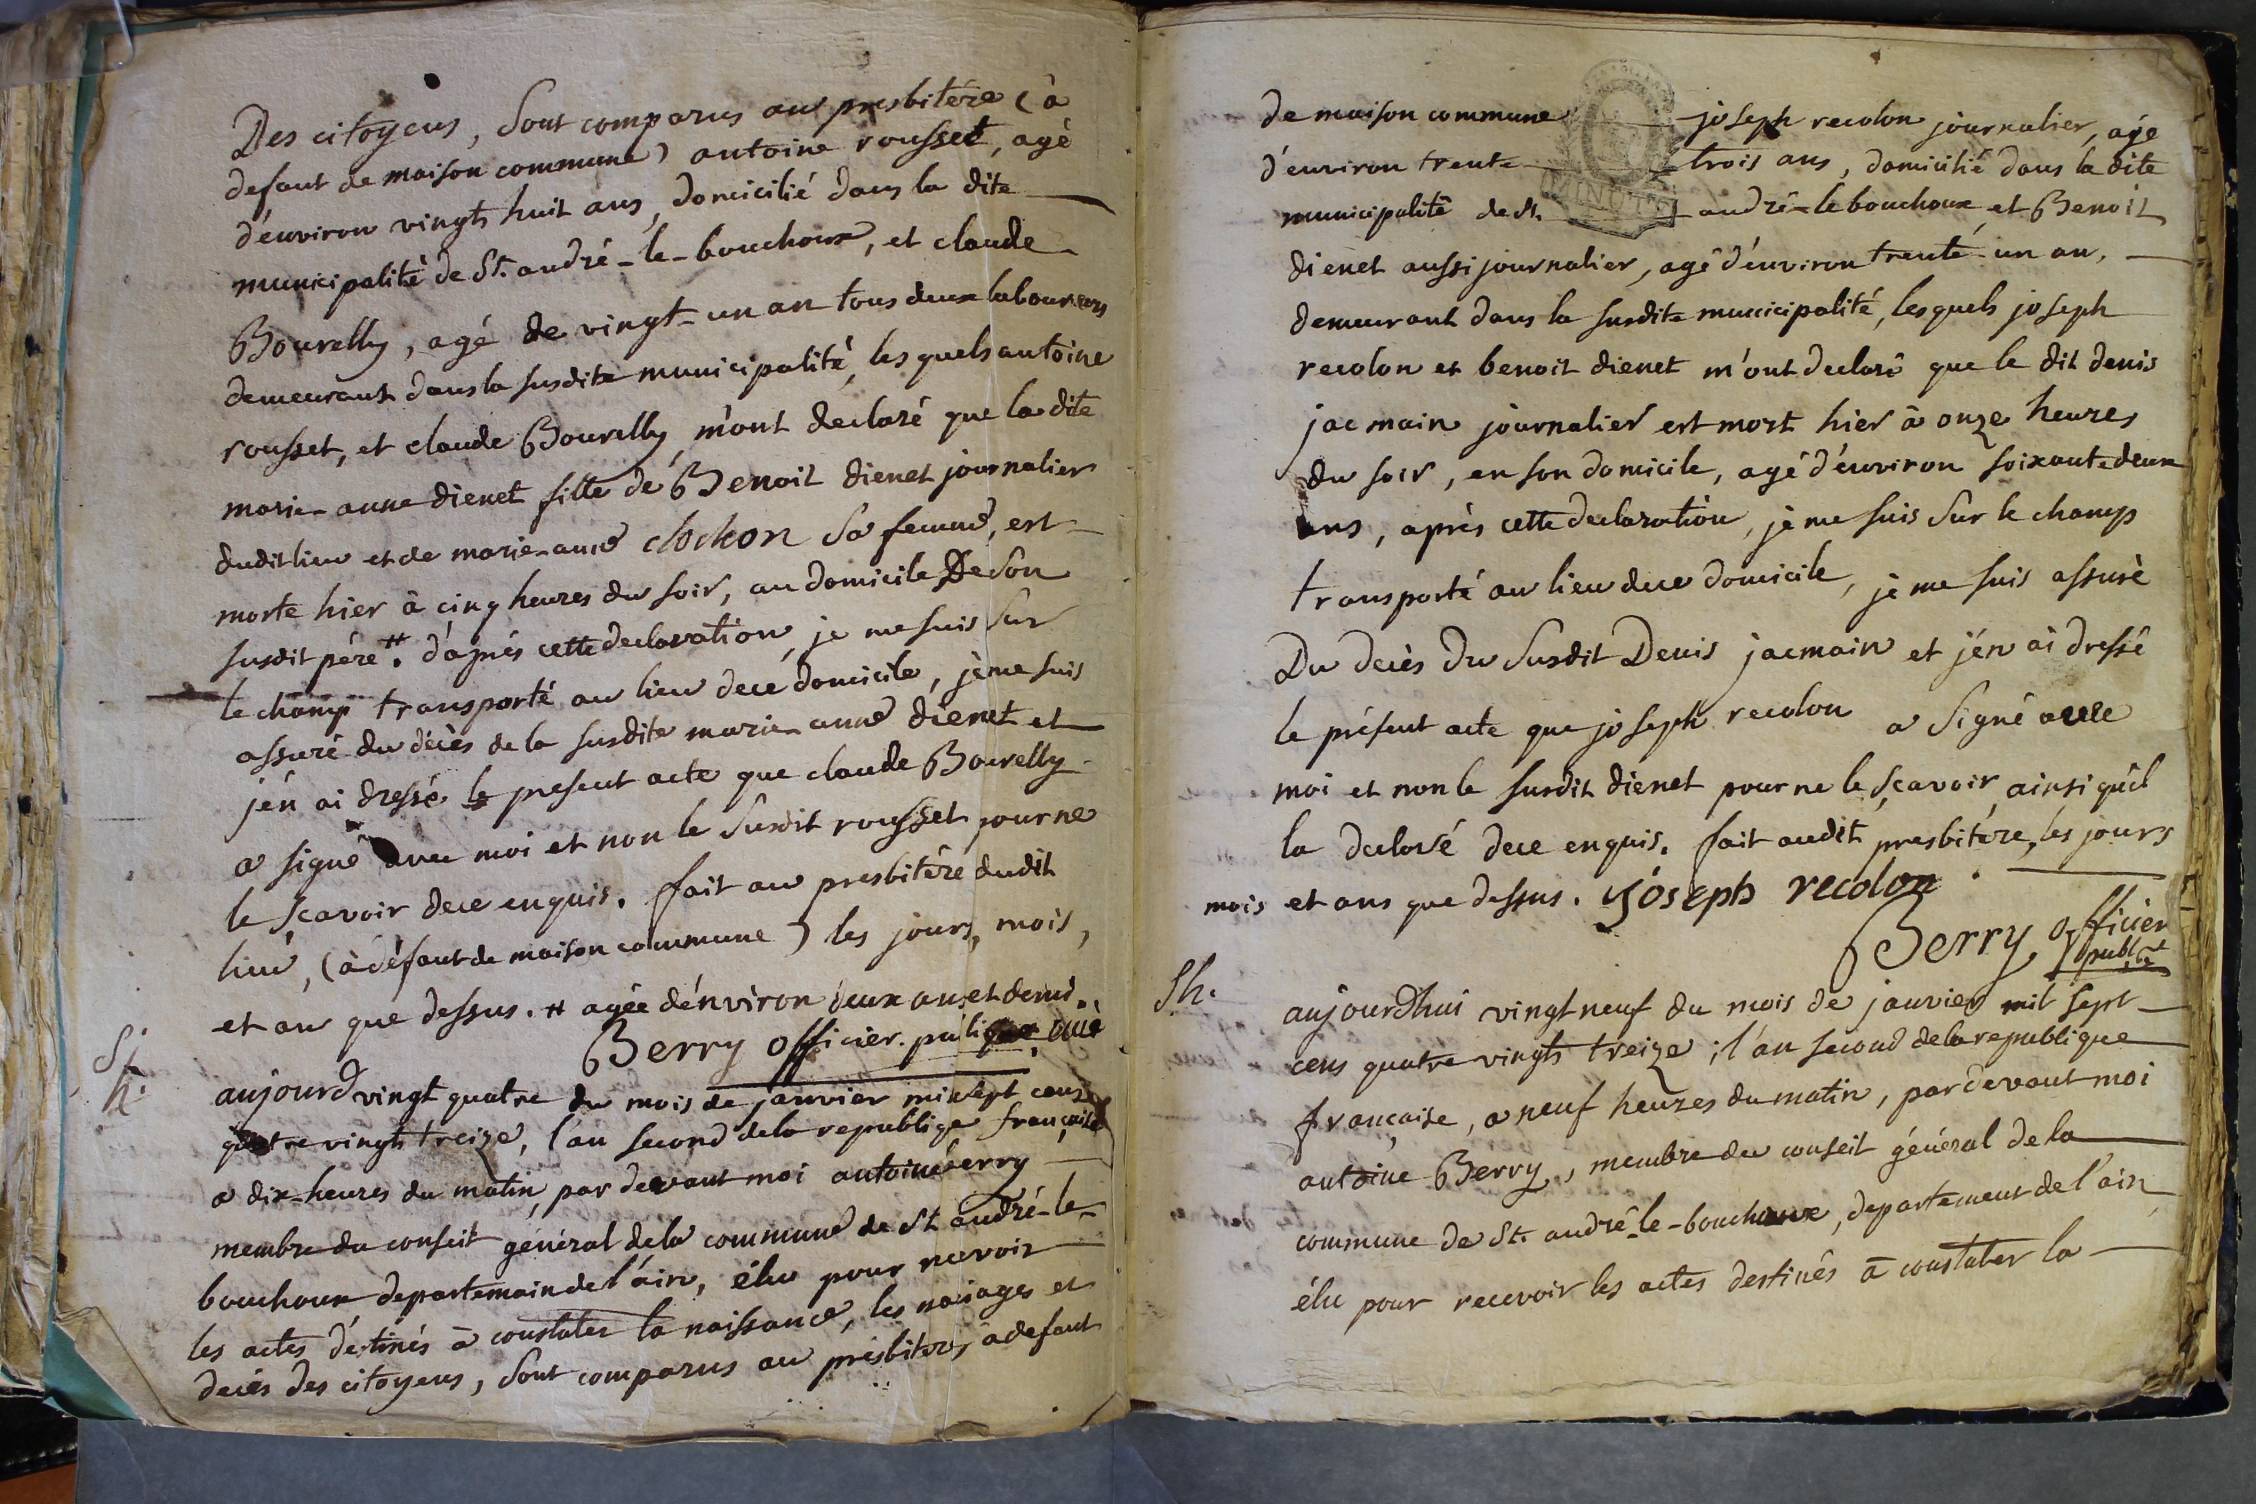 Des citoyens, Sont comparus au presbitére (à
defaut de maison commune) antoine rousset, agé
d'environ vingts huit ans, domicilié dans la dite
municipalité de St. andré-le-bouchoux, et claude
Bourelly, agé de vingt-un an tous deux laboureurs
demeurant dans la susdite municipalité, les quels antoine
rousset, et claude Bourelly, m'ont declaré que la dite
marie-anne dienet fille de Benoit dienet journalier
dudit lieu et de marie-anne clochon sa femme, est
morte hier à cinq heures du soir, au domicile De Son
susdit pére #. d'aprés cette declaration, je me suis sur
le champ transporté au lieu de ce domicile, je me suis
assuré du décès de la susdite marie-anne dienet et
j'en ai dressé le present acte que claude Bourelly
a signé avec moi et non le susdit rousset pour ne
le scavoir de ce enquis. fait au presbitére dudit
lieu, (à défaut de maison commune) les jours, mois,
et an que dessus. # agée d'environ deux ans et demi.
Berry officier. publique
S.
h.
aujourd vingt quatre du mois de janvier mil sept cens
quatre vingts treize, l'an second de la republiqe française
a dix-heures du matin, par devant moi antoine berry
membre du conseil général de la commune de St. andré-le-
bouchoux departemain de l'ain, élu pour recevoir
les actes destinés à constater la naissance, les mariages et
decès des citoyens, Sont comparus au presbitere, a defaut
de maison commune joseph recolon journalier, agé
d'environ trente trois ans, domicilié dans la dite
MINUTE
municipalité de St. andré-le bouchoux, et Benoit
dienet aussi journalier, agé d'environ trente un an,
demeurant dans la susdite municipalité, lesquels joseph
recolon et benoit dienet m'ont declaré que le dit denis
jacmain journalier est mort hier à onze heures
du soir, en son domicile, agé d'environ soixante deux
ans, après cette declaration, je me suis sur le champ
transporté au lieu de ce domicile, je me suis assuré
Du decès du susdit Denis jacmain et j'en ai dressé
le présent acte que joseph recolon a signé avec
moi et non le susdit dienet pour ne le scavoir, ainsi qu'il
la declaré de ce enquis. fait audit presbitére, les jours
mois et ans que dessus. Joseph recolon.
Berry officier
Sh.
aujourdhui vingt neuf du mois de janvier mil sept
cens quatre vingts treize; l'an second de la republique
française, a neuf heures du matin, par devant moi
antoine Berry, membre du conseil général de la
commune de St. andré-le-bouchoux, departement de l'ain
élu pour recevoir les actes destinés à constater la